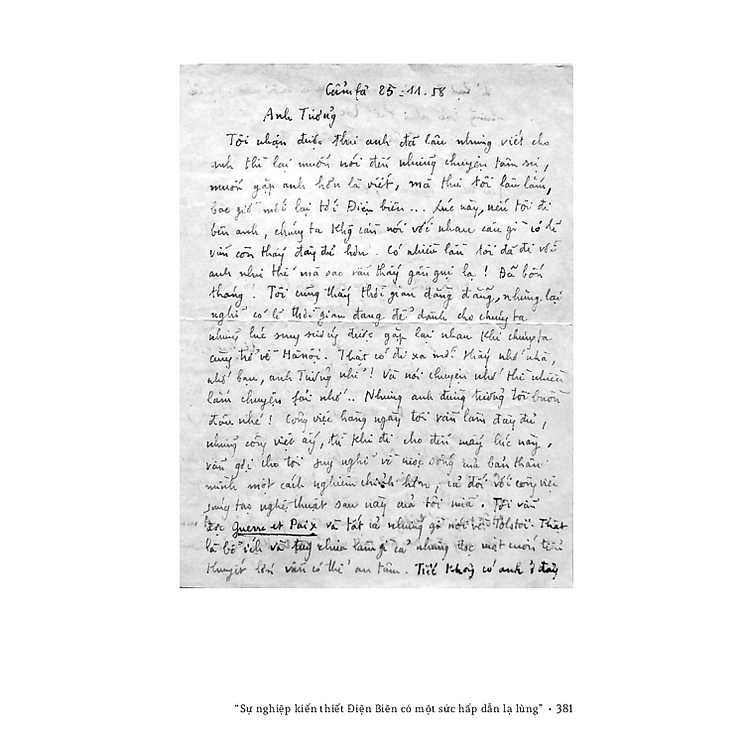 Cẩm fả 25-11-58
Anh Tưởng
Tôi nhận được thư anh đã lâu nhưng viết cho
anh thì lại muốn nói đến những chuyện tâm sự,
muốn gặp anh hơn là viết, mà thư tôi lâu lắm,
bao giờ mới lại tới Điện biên... Lúc này, nếu tôi đi
bên anh, chúng ta khg cần nói với nhau câu gì có lẽ
vẫn còn thấy đầy đủ hơn. Có nhiều lần tôi đã đi với
anh như thế mà sao vẫn thấy gần gũi lạ! Đã bốn
tháng! Tôi cũng thấy thời gian đằng đẵng, nhưng lại
nghĩ có lẽ thời gian đang để dành cho chúng ta
những lúc sung sướng được gặp lại nhau khi chúng ta
cùng trở về Hànội. Thật có đi xa mới thấy nhớ nhà,
nhớ bạn, anh Tưởng nhỉ! Và nói chuyện nhớ thì nhiều
lắm chuyện fải nhớ.. Nhưng anh đừng tưởng tôi buồn
đâu nhé! Công việc hàng ngày tôi vẫn làm đầy đủ,
những công việc ấy, từ khi đi cho đến mấy lúc này,
vẫn gợi cho tôi suy nghĩ về cuộc sống mà bản thân
mình một cách nghiêm chỉnh hơn, cả đối với công việc
sáng tạo nghệ thuật sau này của tôi nữa. Tôi vẫn
đọc Guerre et Paix và tất cả những gì nói về Tolstoi. Thật
là bổ ích và tuy chưa làm gì cả nhưng đọc một cuốn tiểu
thuyết lớn vẫn có thể an tâm. Tiếc không có anh ở đây
"Sự nghiệp kiến thiết Điện Biên có một sức hấp dẫn lạ lùng" • 381